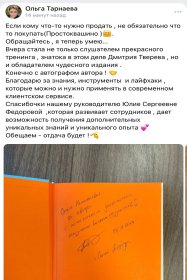 Ольга Тарнаева
16 минут назад
Если кому что-то нужно продать , не обязательно что
то покупать(Простоквашино )😄.
Обращайтесь , я теперь умею...
Вчера стала не только слушателем прекрасного
тренинга , знатока в этом деле Дмитрия Тверева , но
и обладателем чудесного издания .
Конечно с автографом автора ! 🤝
Благодарю за знания, инструменты и лайфхаки ,
которые можно и нужно применять в современном
клиентском сервисе.
Спасибочки нашему руководителю Юлие Сергеевне
Федоровой ,которая развивает сотрудников , дает
возможность получения дополнительных
уникальных знаний и уникального опыта 💕
Обещаем - отдача будет !👏